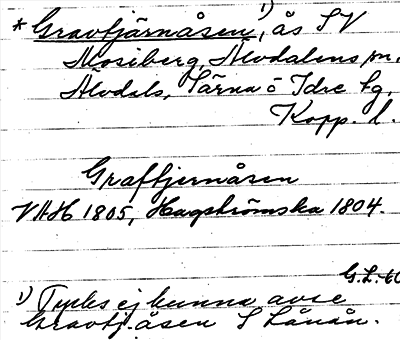 * Gravtjärnåsen,¹⁾ ås S V
Mosiberg, Älvdalens sn.
Älvdals, Särna o Idre tg,
Kopp. l.
Graftjernåsen
VAH 1805, Hagströmska 1804.
G.L.
¹⁾ Tycks ej kunna avse
Gravtj.åsen S Lånån.